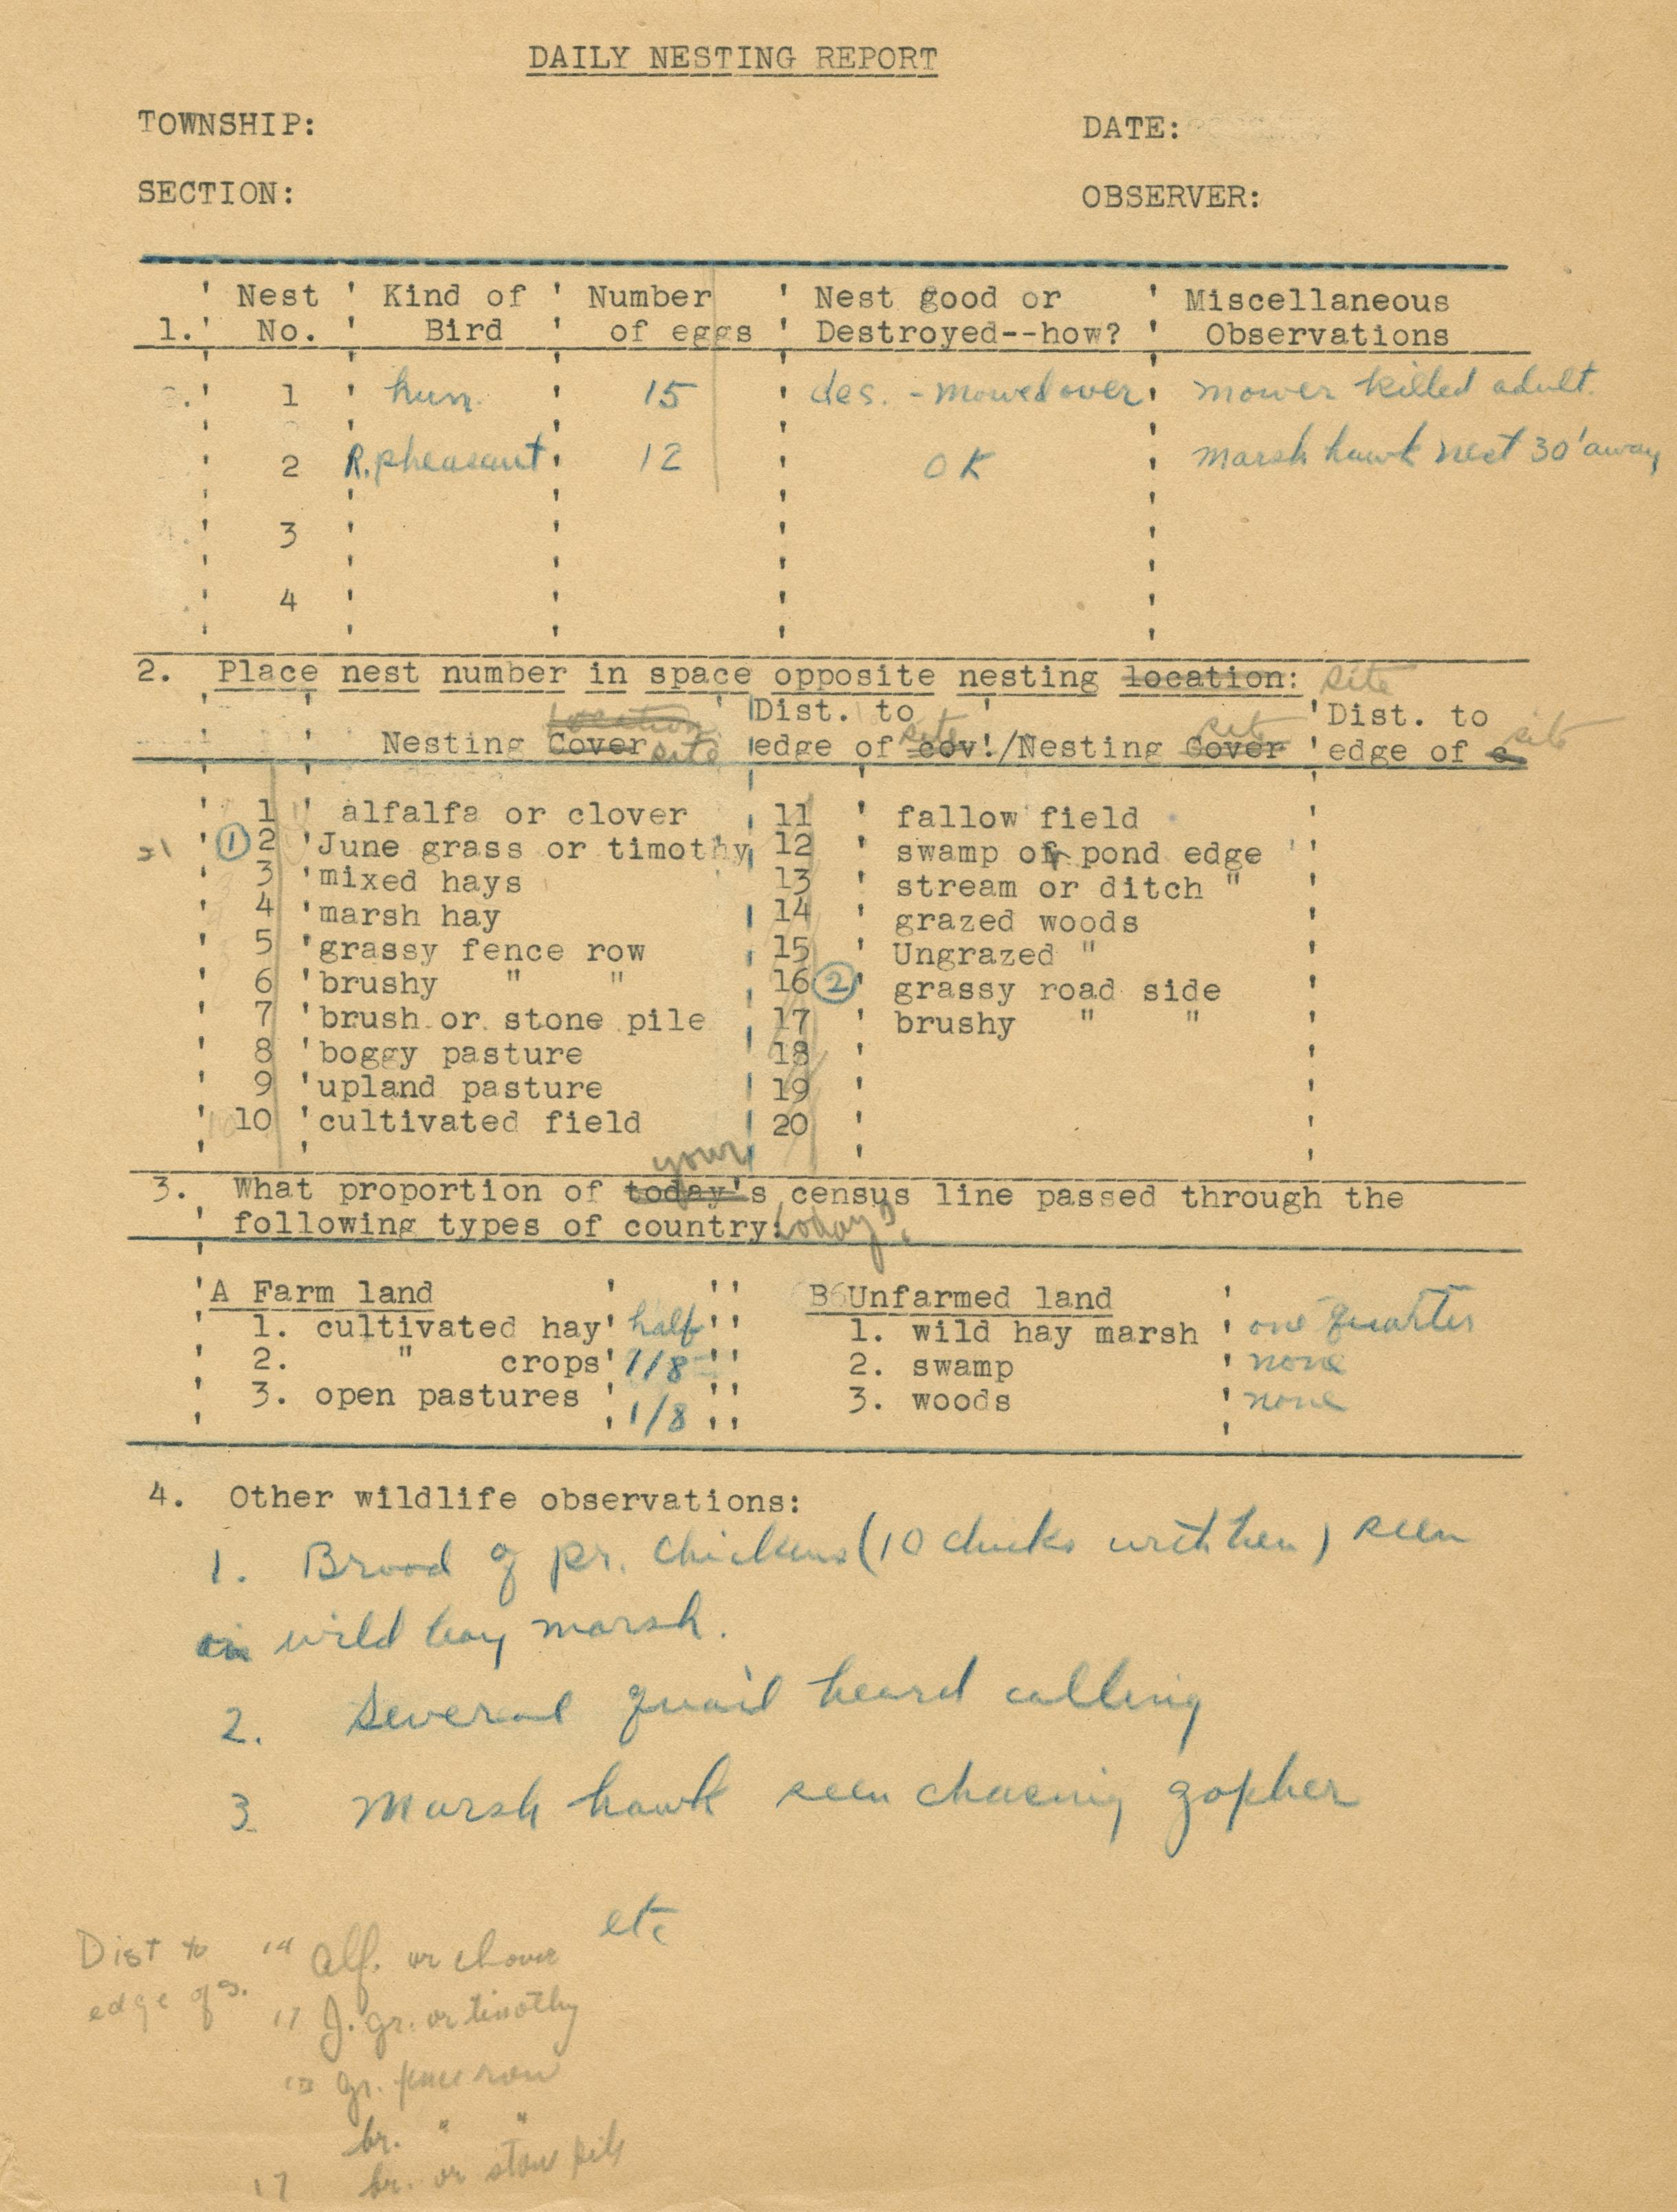 DAILY NESTING REPORT
TOWNSHIP: DATE:
SECTION: OBSERVER:
' Nest ' Kind of ' Number ' Nest good or ' Miscellaneous
1.' No. ' Bird ' of eggs ' Destroyed--how? ' Observations
1 hun. 15 des. - mowed over mower killed adult.
2 R. pheasant 12 OK marsh hawk nest 30' away
3
4
2. Place nest number in space opposite nesting location: site
Location Dist. to Dist. to
Nesting Cover site edge of cov!/Nesting Cover edge of c
site site site
1 ' alfalfa or clover 11 ' fallow field
① 2 ' June grass or timothy 12 ' swamp or pond edge
3 ' mixed hays 13 ' stream or ditch "
4 ' marsh hay 14 ' grazed woods
5 ' grassy fence row 15 ' Ungrazed "
6 ' brushy " " 16 ② ' grassy road side
7 ' brush or stone pile 17 ' brushy " "
8 ' boggy pasture 18 '
9 ' upland pasture 19 '
10 ' cultivated field 20 '
your
3. What proportion of today's census line passed through the
following types of country: today?
A Farm land B Unfarmed land
1. cultivated hay half 1. wild hay marsh one quarter
2. " crops 1/8 2. swamp none
3. open pastures 1/8 3. woods none
4. Other wildlife observations:
1. Brood of pr. chickens (10 chicks with hen) seen
in wild hay marsh.
2. Several quail heard calling
3. Marsh hawk seen chasing gopher
etc
Dist to 14 alf. or clover
edge of s. 17 J. gr. or timothy
13 gr. fence row
br. " "
17 br. or stone pile